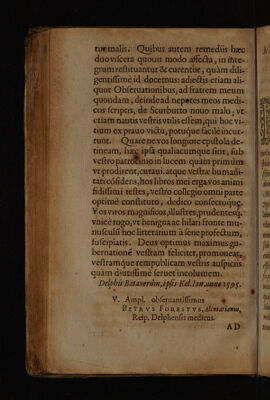 tur malis. Quibus autem remediis hæc
duo viscera quouis modo affecta, in inte-
grum restituantur & curentur, quàm dili-
gentissimè id docemus: adiectis etiam ali-
quot Obseruationibus, ad fratrem meum
quondam, deinde ad nepotes meos medi-
cos scriptis, de Scurbutto nouo malo, vt
etiam nautis vestris vtilis essem, qui hoc vi-
tium ex prauo victu, potuque facilè incur-
runt. Quare ne vos longiore epistola de-
tineam, hæc ipsa qualiacumque sint, sub
vestro patrocinio in lucem quàm primùm
vt prodirent, curaui. atque vestræ humani-
tati cōsidens, hos libros mei erga vos animi
fidissimi testes, vestro collegio omni parte
optimè constituto, dedico consecroque.
Vos viros magnificos, illustres, prudentesq́;
vnicè rogo, vt benigna ac hilari fronte mu-
nusculū hoc litterarium à sene profectum,
suscipiatis. Deus optimus maximus gu-
bernationē vestram feliciter, promoueat,
vestramque rempublicam vestris auspiciis
quàm diutissimè seruet incolumem.
Delphis Batauorum, ipsis Kal. Ian. anno 1595.
V. Ampl. obseruantissimus
PETRVS FORESTVS, Alcmarianus,
Reip. Delphensis medicus.
AD